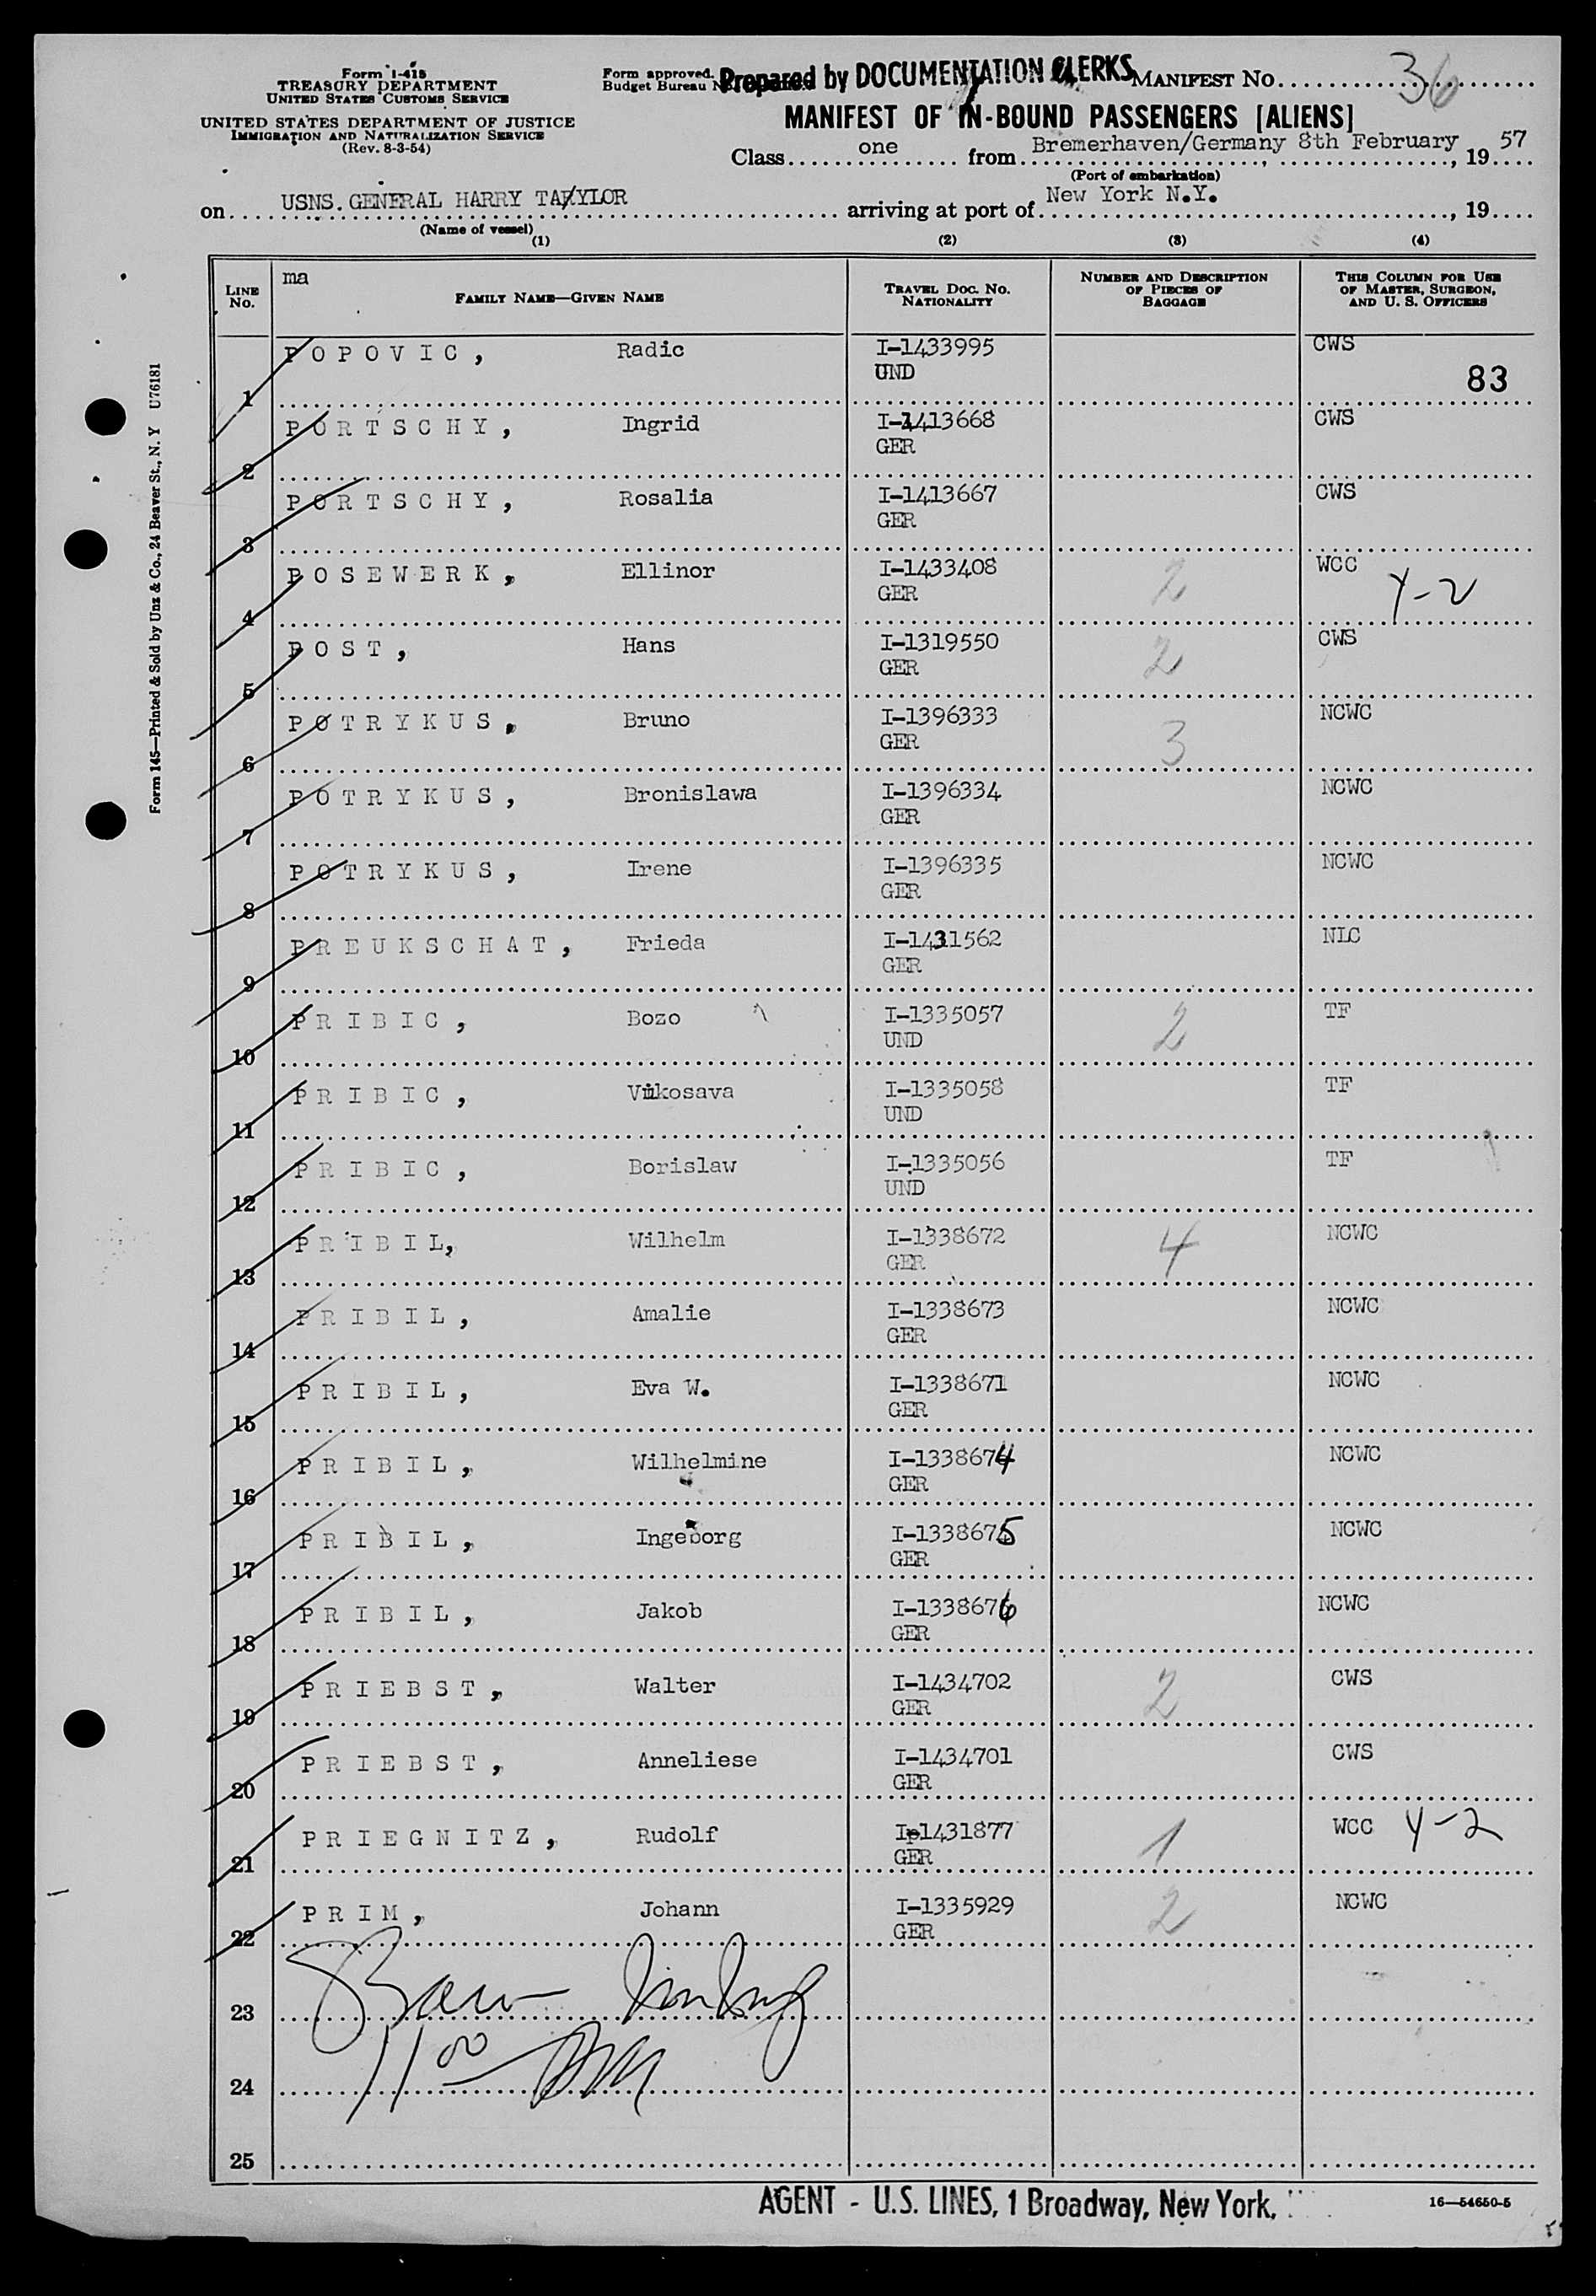 Form I-415
TREASURY DEPARTMENT
UNITED STATES CUSTOMS SERVICE
UNITED STATES DEPARTMENT OF JUSTICE
IMMIGRATION AND NATURALIZATION SERVICE
(Rev. 8-3-54)
Form approved.
Budget Bureau
Prepared by DOCUMENTATION CLERKS
MANIFEST NO. 36
MANIFEST OF IN-BOUND PASSENGERS [ALIENS]
Class one from Bremerhaven/Germany 8th February, 19 57
(Port of embarkation)
on USNS. GENERAL HARRY TAYLOR arriving at port of New York N.Y., 19
(Name of vessel)
(1) (2) (3) (4)
LINE No. ma FAMILY NAME—GIVEN NAME TRAVEL DOC. NO. NATIONALITY NUMBER AND DESCRIPTION OF PIECES OF BAGGAGE THIS COLUMN FOR USE OF MASTER, SURGEON, AND U. S. OFFICERS
1 POPOVIC, Radic I-1433995 UND CWS 83
2 PORTSCHY, Ingrid I-1413668 GER CWS
3 PORTSCHY, Rosalia I-1413667 GER CWS
4 POSEWERK, Ellinor I-1433408 GER 2 WCC Y-2
5 POST, Hans I-1319550 GER 2 CWS
6 POTRYKUS, Bruno I-1396333 GER 3 NCWC
7 POTRYKUS, Bronislawa I-1396334 GER NCWC
8 POTRYKUS, Irene I-1396335 GER NCWC
9 PREUKSCHAT, Frieda I-1431562 GER NLC
10 PRIBIC, Bozo I-1335057 UND 2 TF
11 PRIBIC, Vukosava I-1335058 UND TF
12 PRIBIC, Borislaw I-1335056 UND TF
13 PRIBIL, Wilhelm I-1338672 GER 4 NCWC
14 PRIBIL, Amalie I-1338673 GER NCWC
15 PRIBIL, Eva W. I-1338671 GER NCWC
16 PRIBIL, Wilhelmine I-1338674 GER NCWC
17 PRIBIL, Ingeborg I-1338675 GER NCWC
18 PRIBIL, Jakob I-1338676 GER NCWC
19 PRIEBST, Walter I-1434702 GER 2 CWS
20 PRIEBST, Anneliese I-1434701 GER CWS
21 PRIEGNITZ, Rudolf I-1431877 GER 1 WCC Y-2
22 PRIM, Johann I-1335929 GER 2 NCWC
23
24 11 00 AM
25
AGENT - U.S. LINES, 1 Broadway, New York,
16—54650-5
Form 145—Printed & Sold by Unz & Co., 24 Beaver St., N. Y U76181